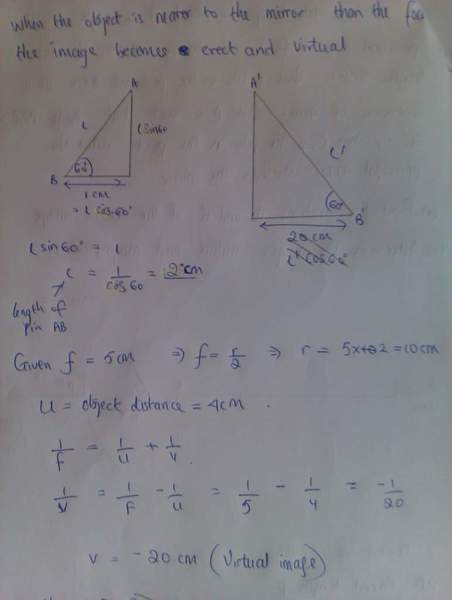 when the object is nearer to the mirror than the
the image becomes erect and virtual
A
A'
L
L sin60
L'
60°
60°
B
B'
1 cm
= L cos 60°
20 cm
L' cos 60°
L sin 60° = 1
L = 1/cos 60 = 2 cm
length of
pin AB
Given f = 5 cm ⇒ f = r/2 ⇒ r = 5x2 = 10 cm
U = object distance = 4cm .
1/f = 1/u + 1/v .
1/V = 1/F - 1/u = 1/5 - 1/4 = -1/20
v = -20 cm (Virtual image)